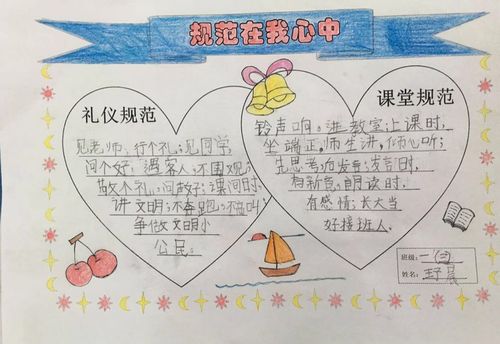 规范在我心中
礼仪规范
见老师、行个礼；见同学
问个好；遇客人；不围观；
敬个礼，问
好；课间时，
讲文明；不奔跑；不
叫
争做文明小
公民。
课堂规范
铃声响。进教室上课时，
坐端正。师生讲，
心听；
先思考后发言；发言时，
有
朗读时，
有感情；长大当
好接班人
班级：一
姓名：
晨